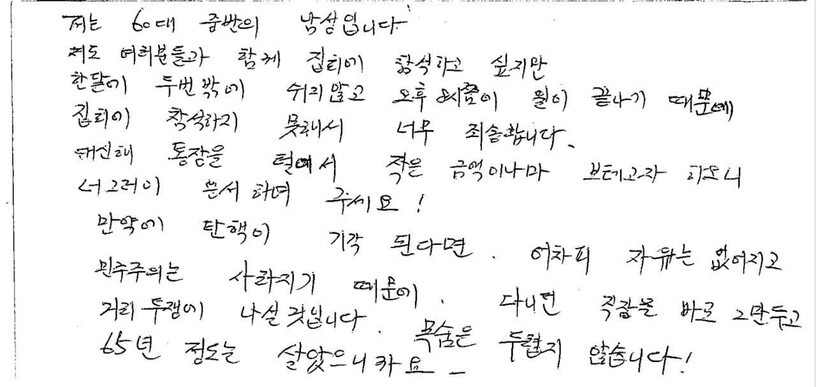 저는 60대 중반의 남성입니다
저도 여러분들과 함께 집회에 참석하고 싶지만
한달에 두번밖에 쉬지않고 오후 8시쯤이 일이 끝나기 때문에
집회에 참석하지 못해서 너무 죄송합니다.
대신해 통장을 털어서 적은 금액이나마 보태고자 하오니
너그러이 용서하여 주세요!
만약에 탄핵이 기각 된다면. 어차피 자유는 없어지고
민주주의는 사라지기 때문에. 다니던 직장을 바로 그만두고
거리투쟁에 나설것입니다. 목숨은 두렵지 않습니다!
65년 정도는 살았으니까요 -